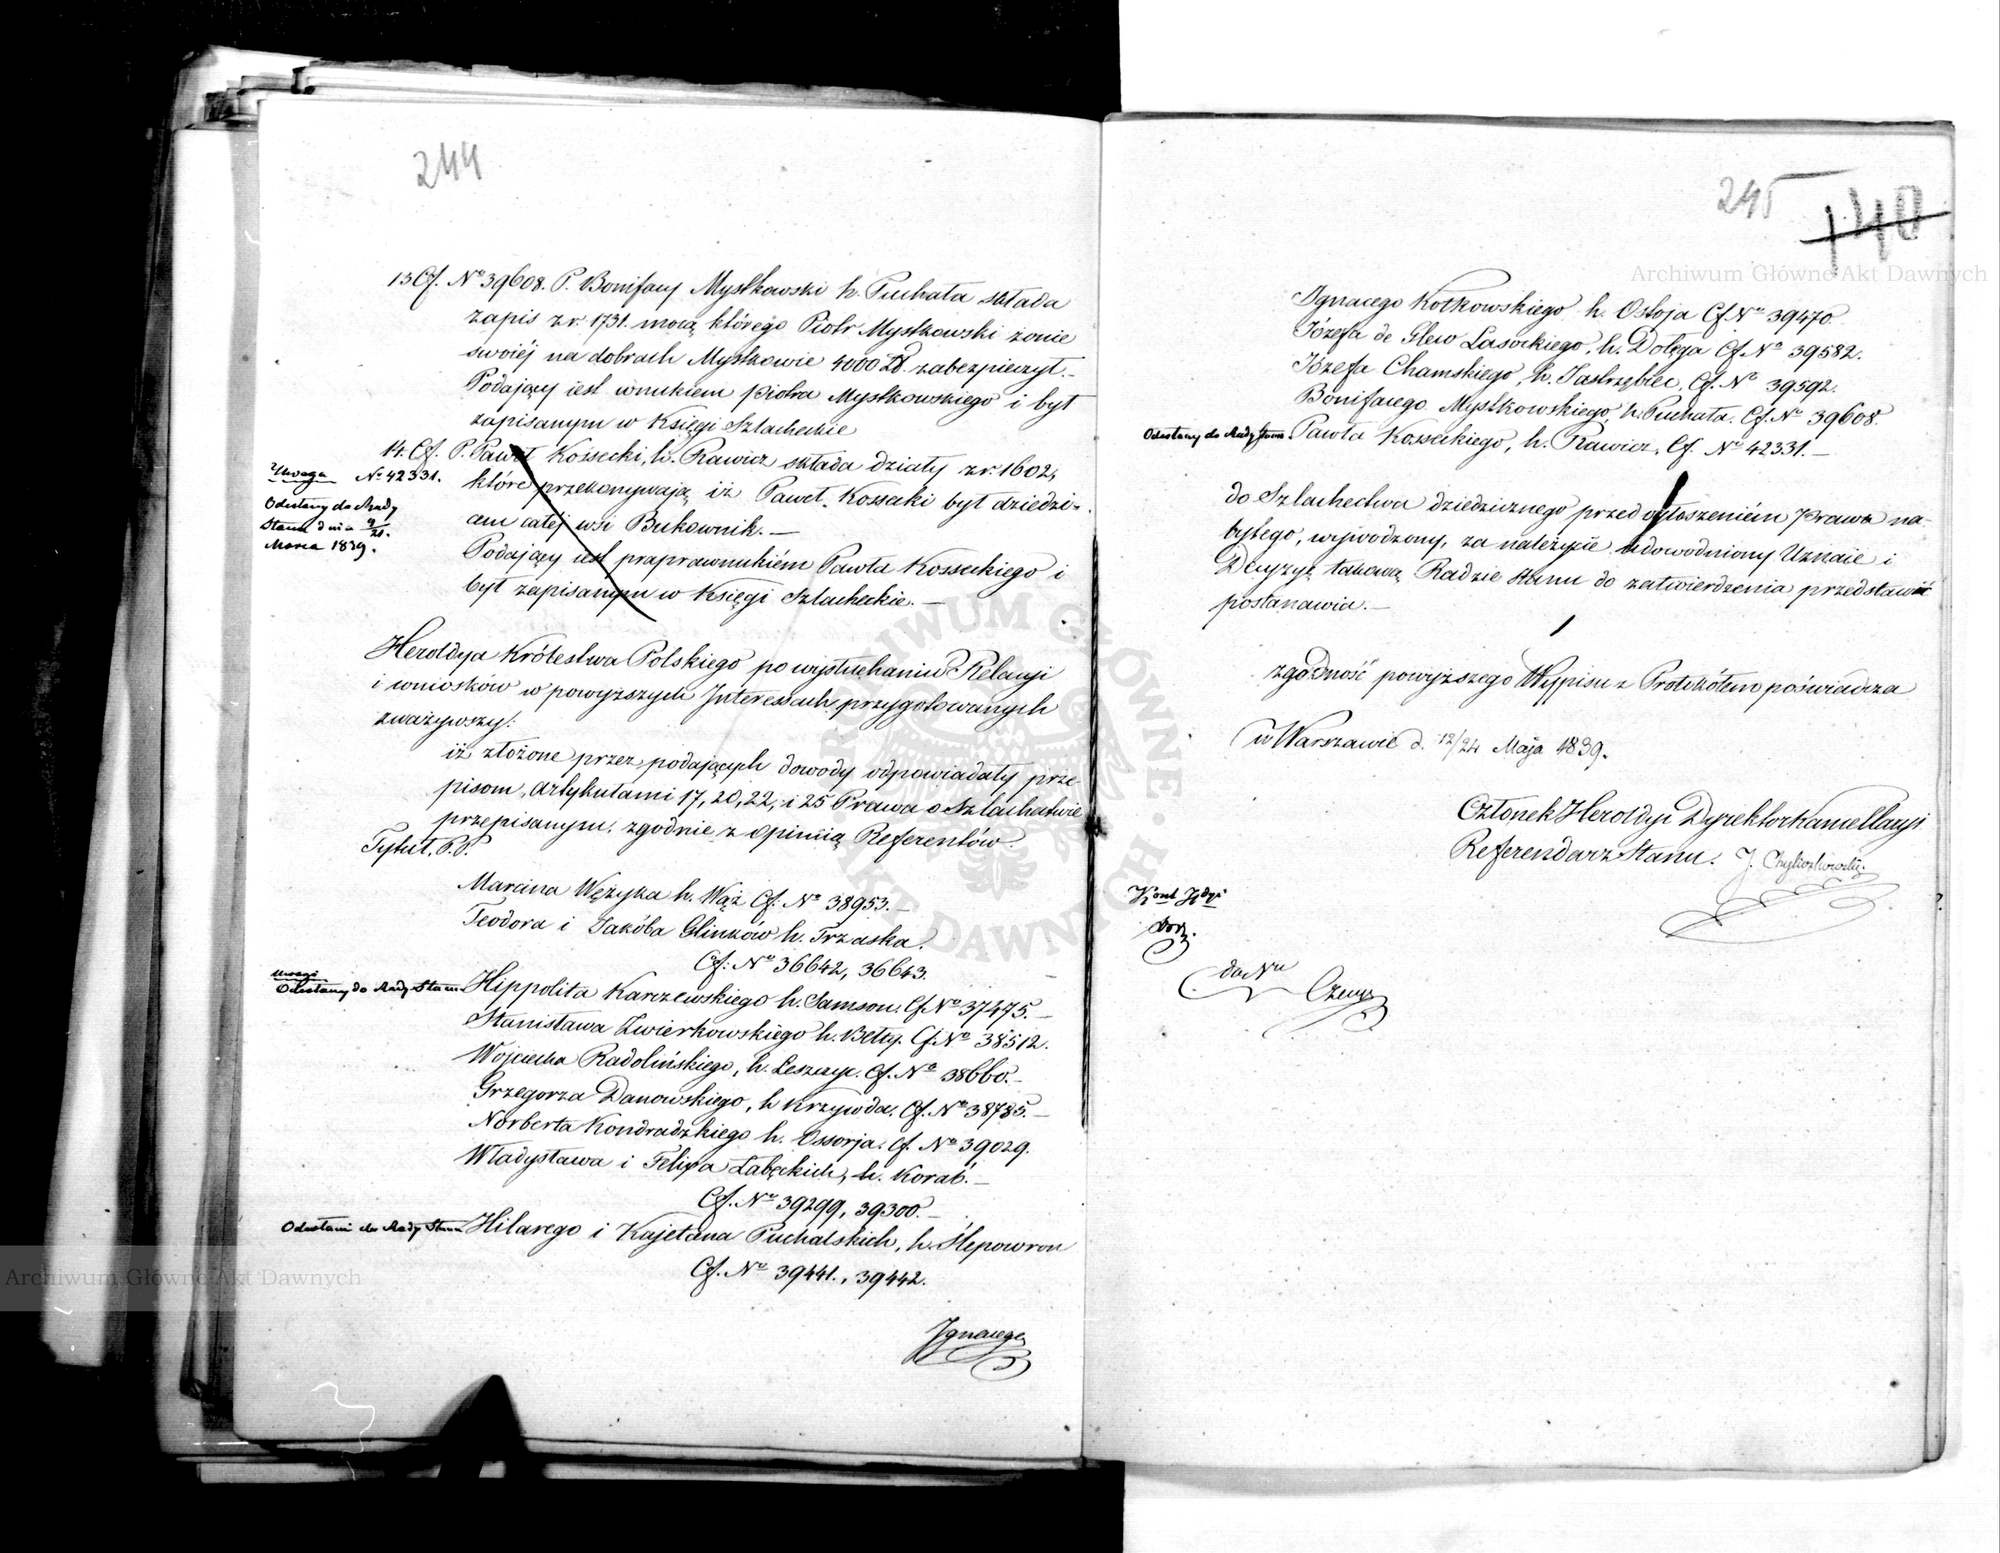 244
13 Cf. No 39608. P. Bonifacy Mystkowski h. Puchała składa
zapis z r. 1731. mocą którego Piotr Mystkowski żonie
swoiéj na dobrach Mystkowie 4000 Zł. zabezpieczył.—
Podaiący iest wnukiem Piotra Mystkowskiego i był
zapisanym w Księgi Szlacheckie
14. Cf. P. Paweł Kossecki, h. Rawicz składa działy z r. 1602,
Uwaga No 42331. które przekonywaią iż Paweł Kossecki był dziedzi-
Odesłany do Rady
Stanu dnia 9/21.
Marca 1839.
cem całej wsi Bukownik.—
Podaiący iest praprawnukiém Pawła Kosseckiego i
był zapisanym w Księgi Szlacheckie.—
Heroldya Królestwa Polskiego po wysłuchaniu Relacyi
i wniosków w powyższych Interessach przygotowanych
zważywszy:
iż złożone przez podaiących dowody odpowiadały prze-
pisom, artykułami 17, 20, 22, i 25 Prawa o Szlachectwie
przepisanym, zgodnie z opinią Referentów
Tytuł. P.P.
Marcina Wężyka h. Wąż Cf. No 38953.—
Teodora i Jakóba Glinków h. Trzaska.
Cf: No 36642, 36643.
Uwagi
Odesłany do Rady Stanu Hippolita Karczewskiego h. Samson. Cf No 37475.—
Stanisława Zwierkowskiego h. Bełty. Cf. No 38512.
Wojciecha Radolińskiego, h. Leszczyc. Cf. No 38660.—
Grzegorza Danowskiego, h Krzywda. Cf. No 38785.—
Norberta Kondradzkiego h. Ossorja. Cf. No 39029.
Władysława i Felixa Łabęckich, h. Korab.—
Cf. No 39299, 39300.—
Odesłani do Rady Stanu Hilarego i Kajetana Puchalskich, h. Ślepowron
Cf. No 39441., 39442.
Ignacego
245
140
Archiwum Główne Akt Dawnych
Ignacego Kotkowskiego h. Ostoja Cf No 39470.
Józefa de Glew Lasockiego, h. Dołęga Cf. No 39582.
Józefa Chamskiego, h. Jastrzębiec, Cf. No 39592.
Bonifacego Mystkowskiego, h. Puchała. Cf. No 39608.
Odesłany do Rady Stanu Pawła Kosseckiego, h. Rawicz, Cf. No 42331.—
do Szlachectwa dziedzicznego przed ogłoszeniém Prawa na-
bytego, wywodzony, za należycie udowodniony Uznaie i
Decyzyę takową Radzie Stanu do zatwierdzenia przedstawić
postanawia.—
zgodność powyższego Wypisu z Protokółem poświadcza
w Warszawie d. 12/24 Maja 1839.
Członek Heroldyi Dyrektor Kancellaryi
Referendarz Stanu.
Archiwum Główne Akt Dawnych
ARCHIWUM GŁÓWNE AKT DAWNYCH